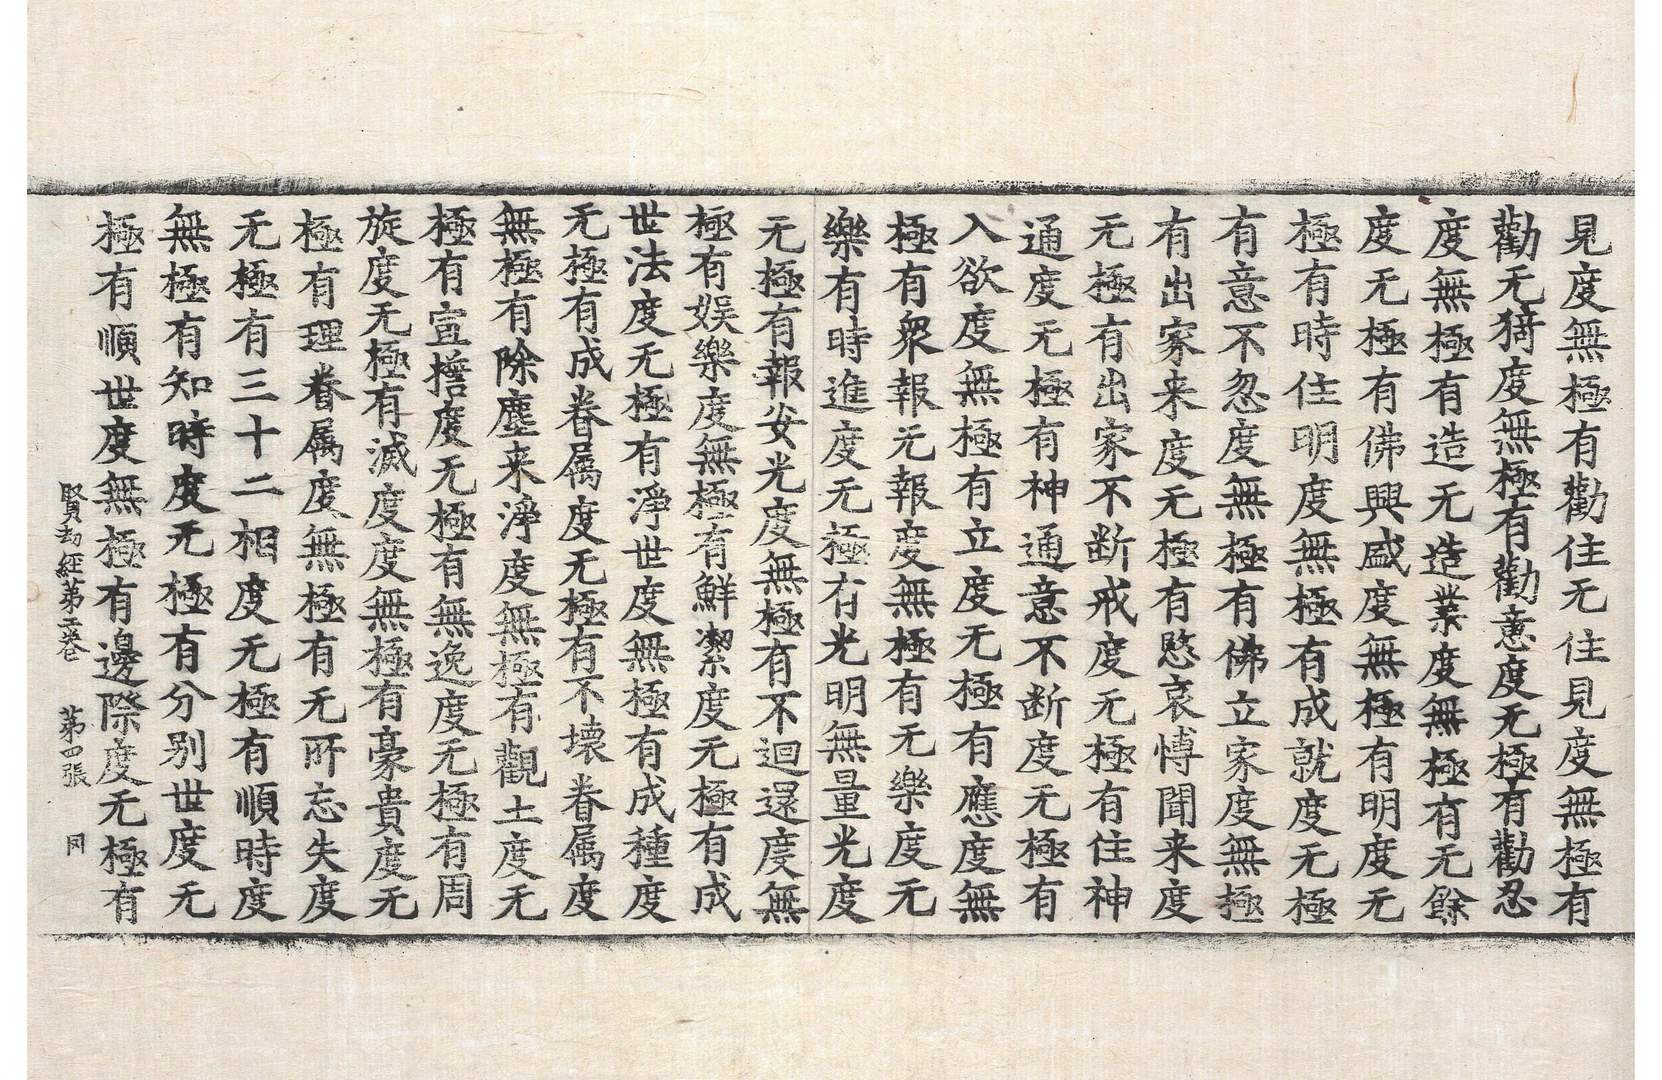 見度無極有勸住无住見度無極有
勸无猗度無極有勸意度无極有勸忍
度無極有造无造業度無極有无餘
度无極有佛興盛度無極有明度无
極有時住明度無極有成就度无極
有意不忽度無極有佛立家度無極
有出家来度无極有愍哀愽聞来度
无極有出家不断戒度无極有住神
通度无極有神通意不断度无極有
入欲度無極有立度无極有應度無
極有衆報无報度無極有无樂度无
樂有時進度无極有光明無量光度
无極有報安光度無極有不迴還度無
極有娱樂度無極有鮮潔度无極有成
世法度无極有淨世度無極有成種度
无極有成眷属度无極有不壞眷属度
無極有除塵来淨度無極有觀土度无
極有宣擔度无極有無逸度无極有周
旋度无極有滅度度無極有豪貴度无
極有理眷属度無極有无所忘失度
无極有三十二相度无極有順時度
無極有知時度无極有分别世度无
極有順世度無極有邊際度无極有
賢劫經第二卷　第四張　冈